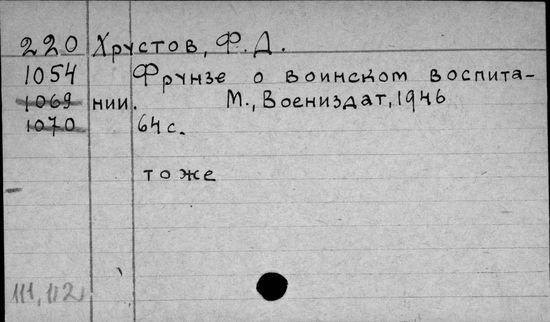 220 Хрустов, Ф.Д.
1054 Фрунзе о воинском воспита-
1069 нии. М., Воениздат, 1946
1070 64 с.
тоже
111, 112